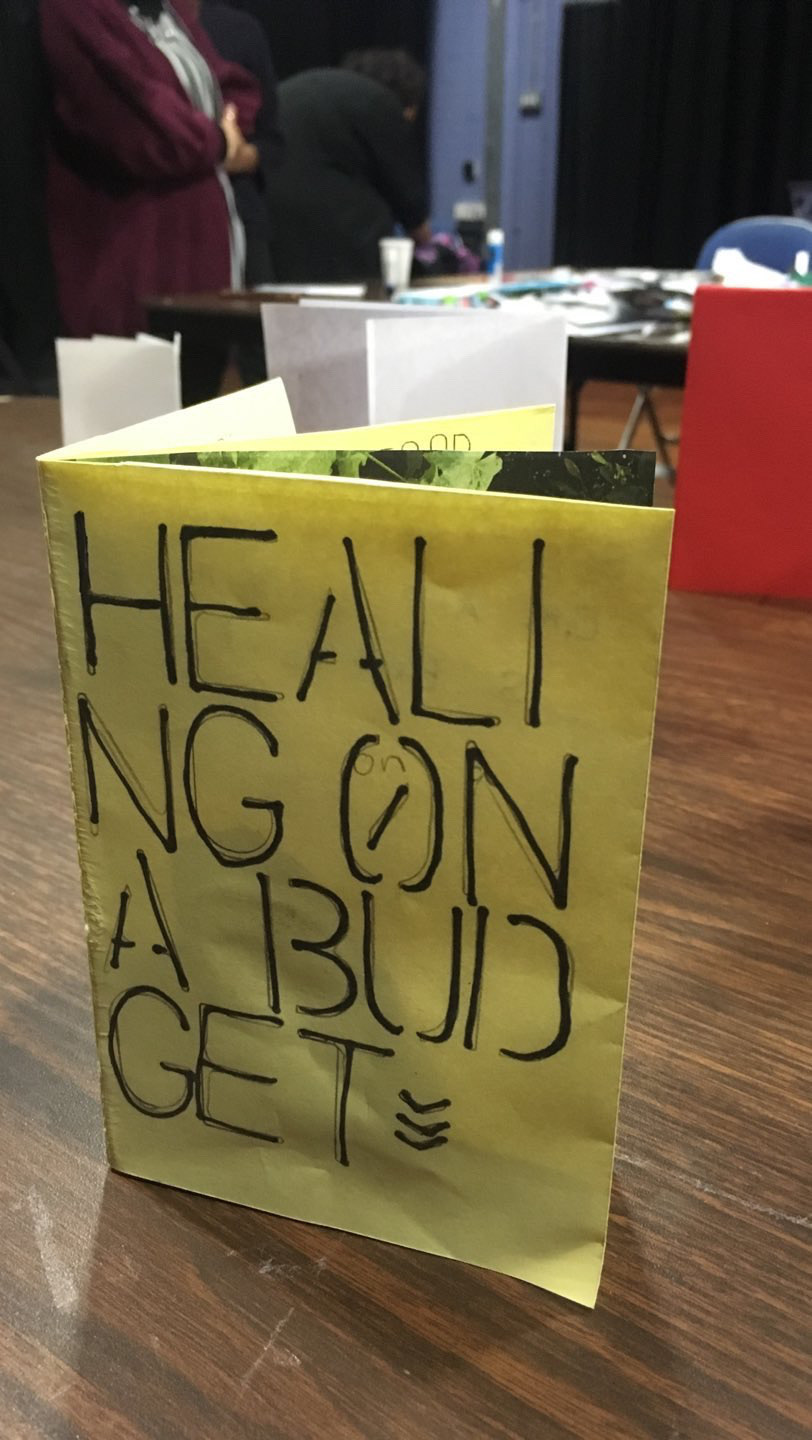 HEALI
NG ON
on
A BUD
GET